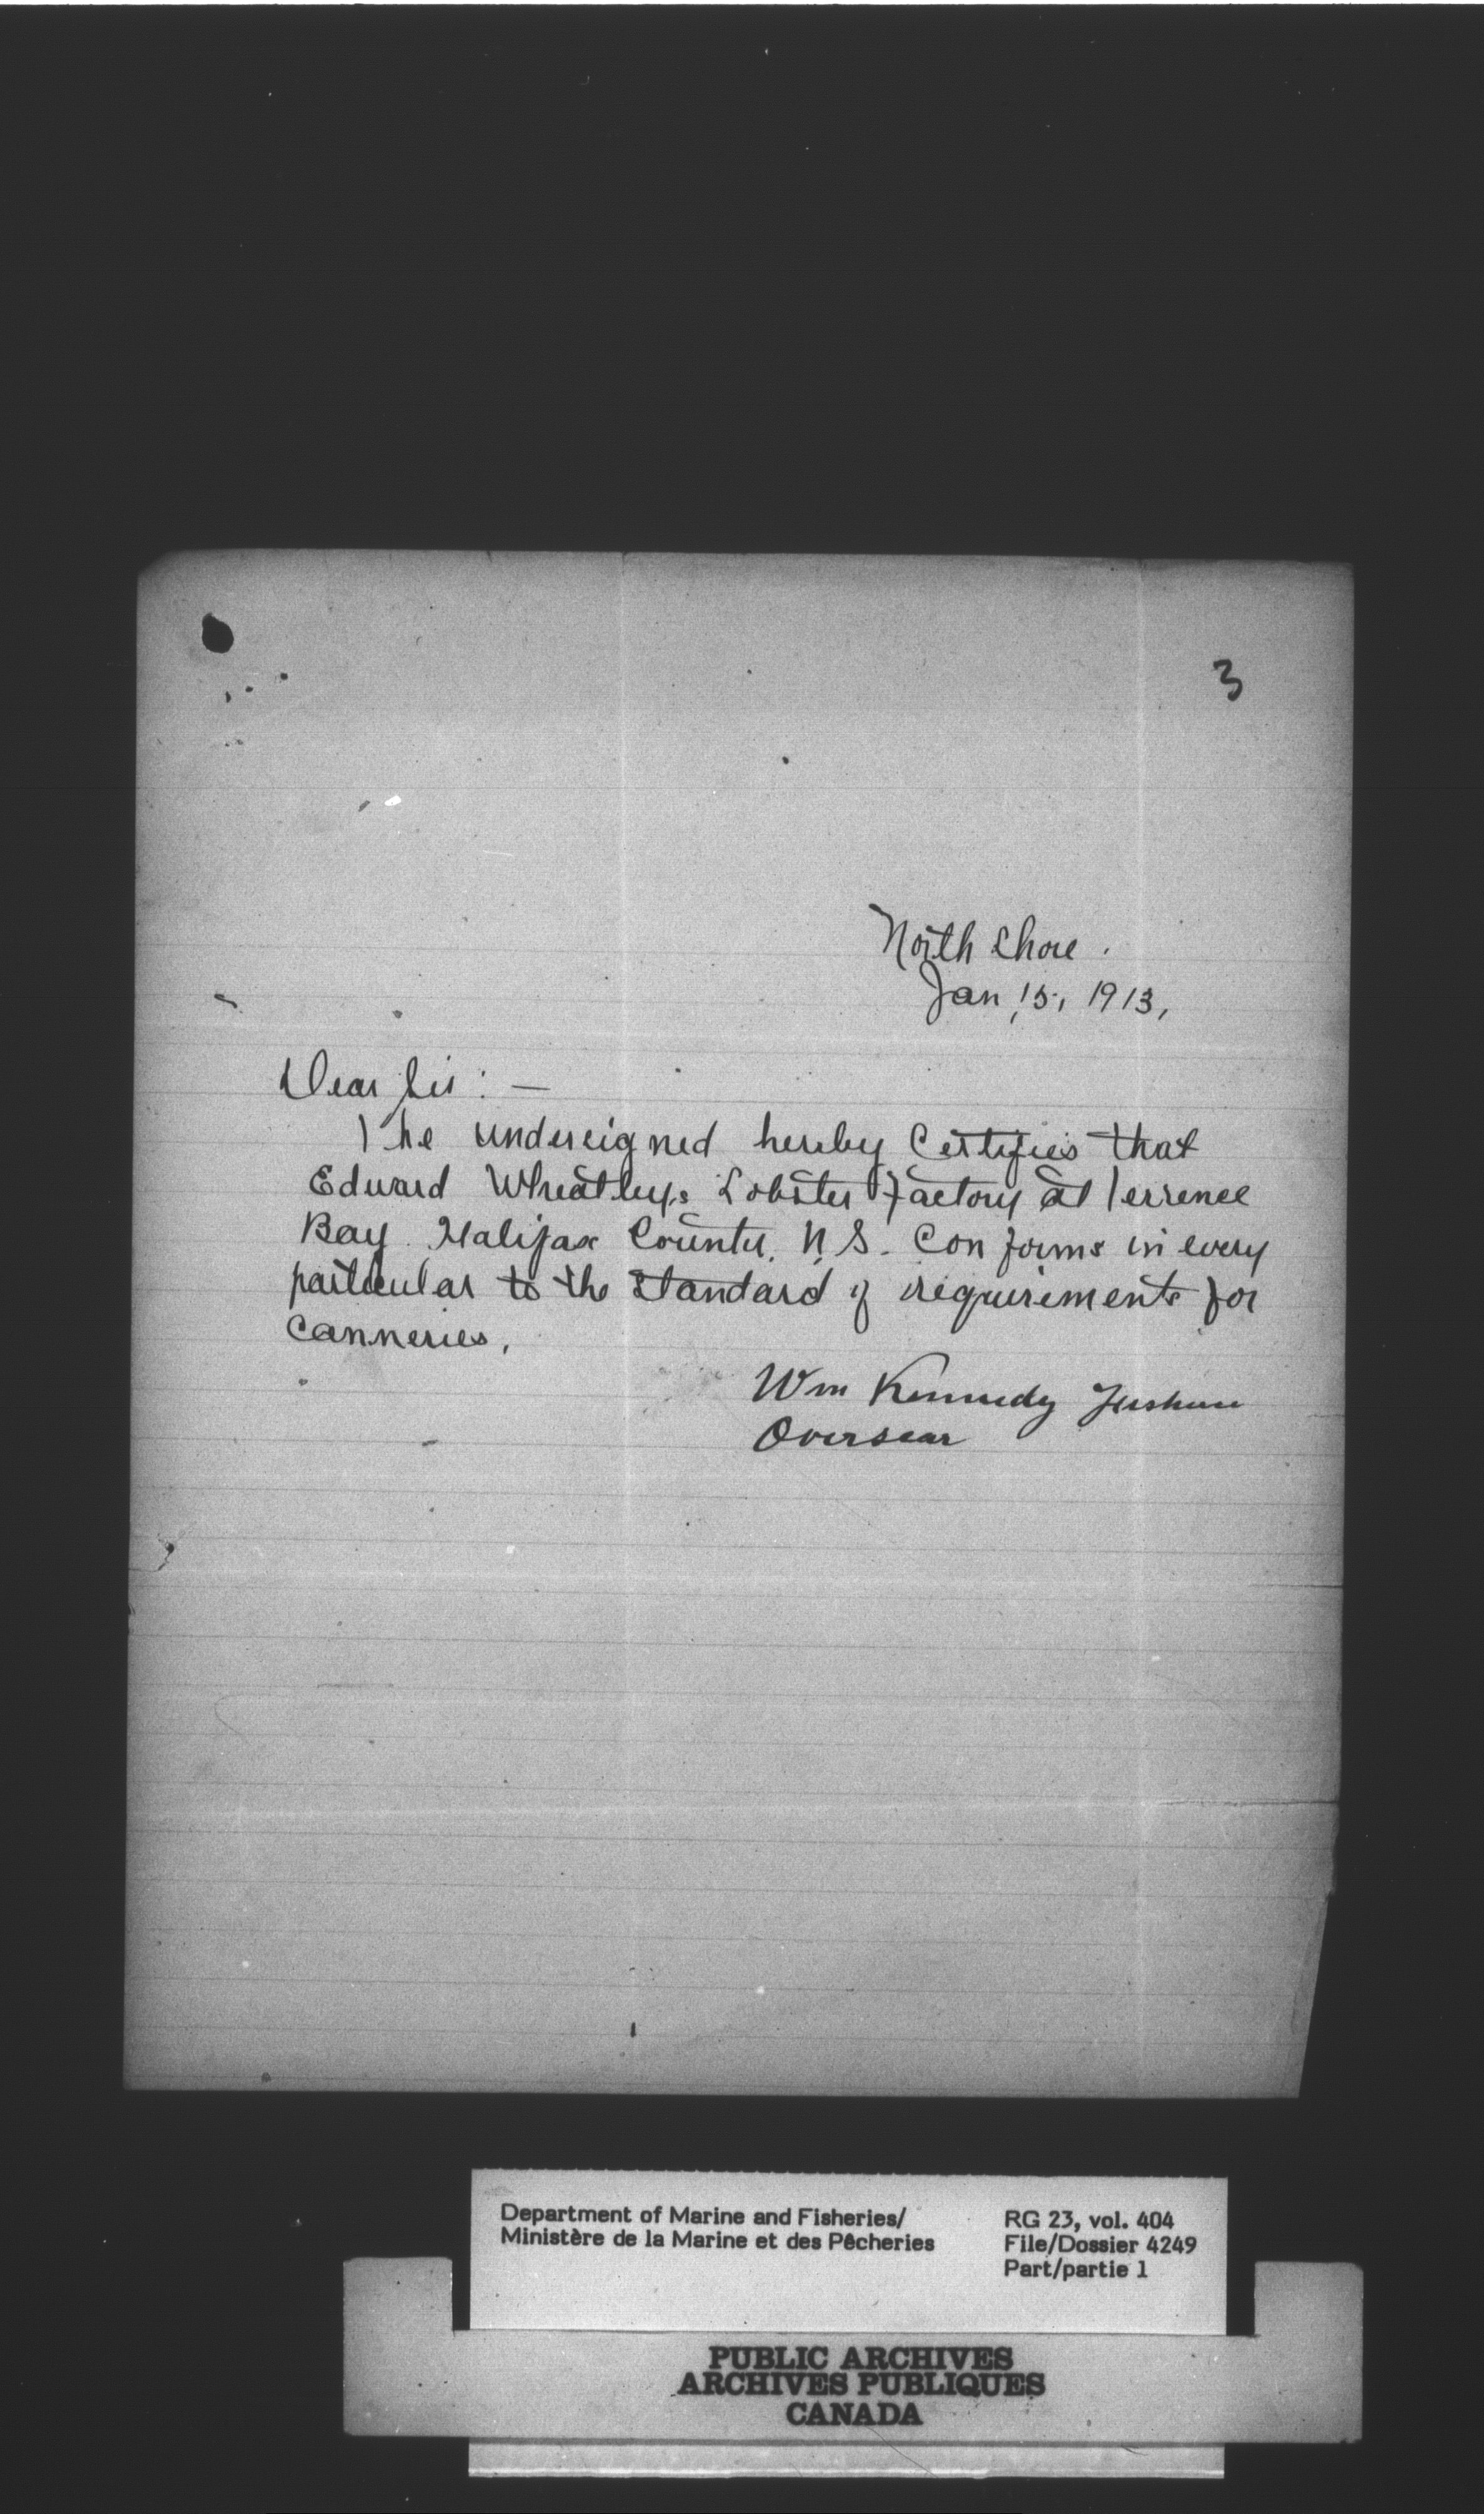 3
North Shore.
Jan, 15, 1913,
Dear Sir: —
The undersigned hereby Certifies that
Edward Wheatleys Lobster Factory at Terrence
Bay Halifax County, N.S. Con forms in every
particular to the Standard of requirements for
Canneries,
Wm Kennedy
Overseear
Department of Marine and Fisheries/
Ministère de la Marine et des Pêcheries
RG 23, vol. 404
File/Dossier 4249
Part/partie 1
PUBLIC ARCHIVES
ARCHIVES PUBLIQUES
CANADA